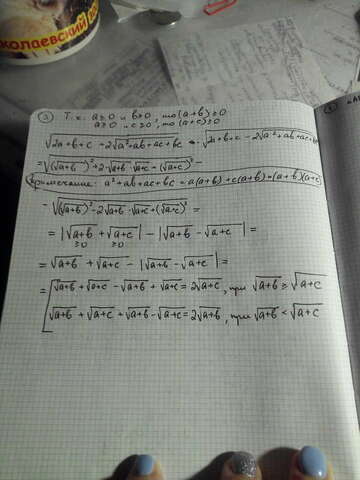 колаевский
③ Т.к. a≥0 и b≥0, то (a+b)≥0
a≥0 и c≥0, то (a+c)≥0
√(2a+b+c+2√(a²+ab+ac+bc)) - √(2a+b+c-2√(a²+ab+ac+bc))
=√((√(a+b))²+2·√(a+b)·√(a+c)+(√(a+c))²) -
Примечание: a²+ab+ac+bc=a(a+b)+c(a+b)=(a+b)(a+c)
-√((√(a+b))²-2√(a+b)·√(a+c)+(√(a+c))²) =
= |√(a+b)+√(a+c)| - |√(a+b)-√(a+c)| =
≥0 ≥0
= √(a+b)+√(a+c) - |√(a+b)-√(a+c)| =
= [√(a+b)+√(a+c)-√(a+b)+√(a+c)=2√(a+c), при √(a+b)≥√(a+c)
√(a+b)+√(a+c)+√(a+b)-√(a+c)=2√(a+b), при √(a+b)<√(a+c)